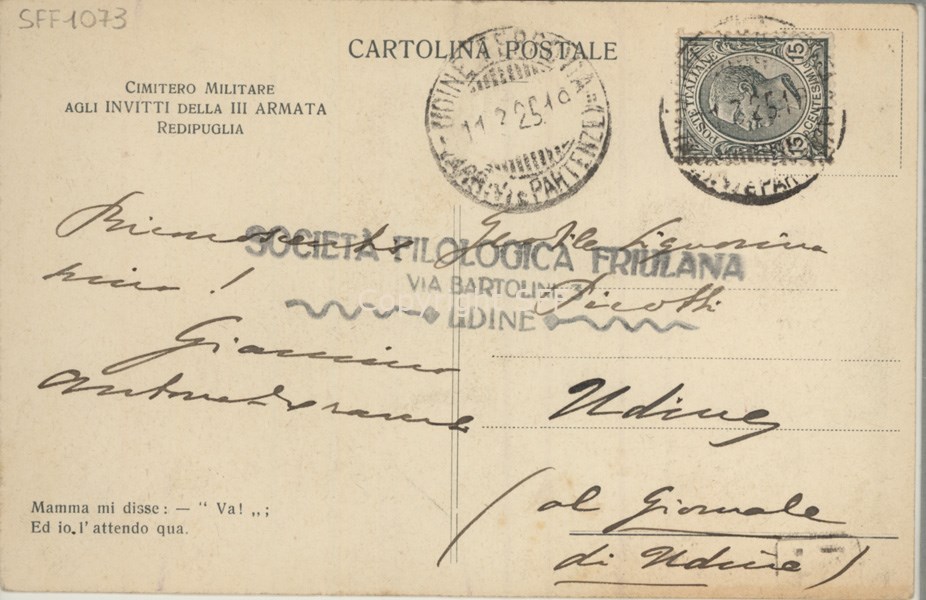 SFF1073
CARTOLINA POSTALE
CIMITERO MILITARE
AGLI INVITTI DELLA III ARMATA
REDIPUGLIA
UDINE
11.2.25.18
PARTENZE
POSTE ITALIANE
CENTESIMI 15
15
Gentile Signorina
mio!
Picotti
SOCIETÀ FILOLOGICA FRIULANA
VIA BARTOLINI 3
UDINE
Giannino
Udine
(al Giornale
di Udine)
Mamma mi disse: — " Va! „;
Ed io l'attendo qua.